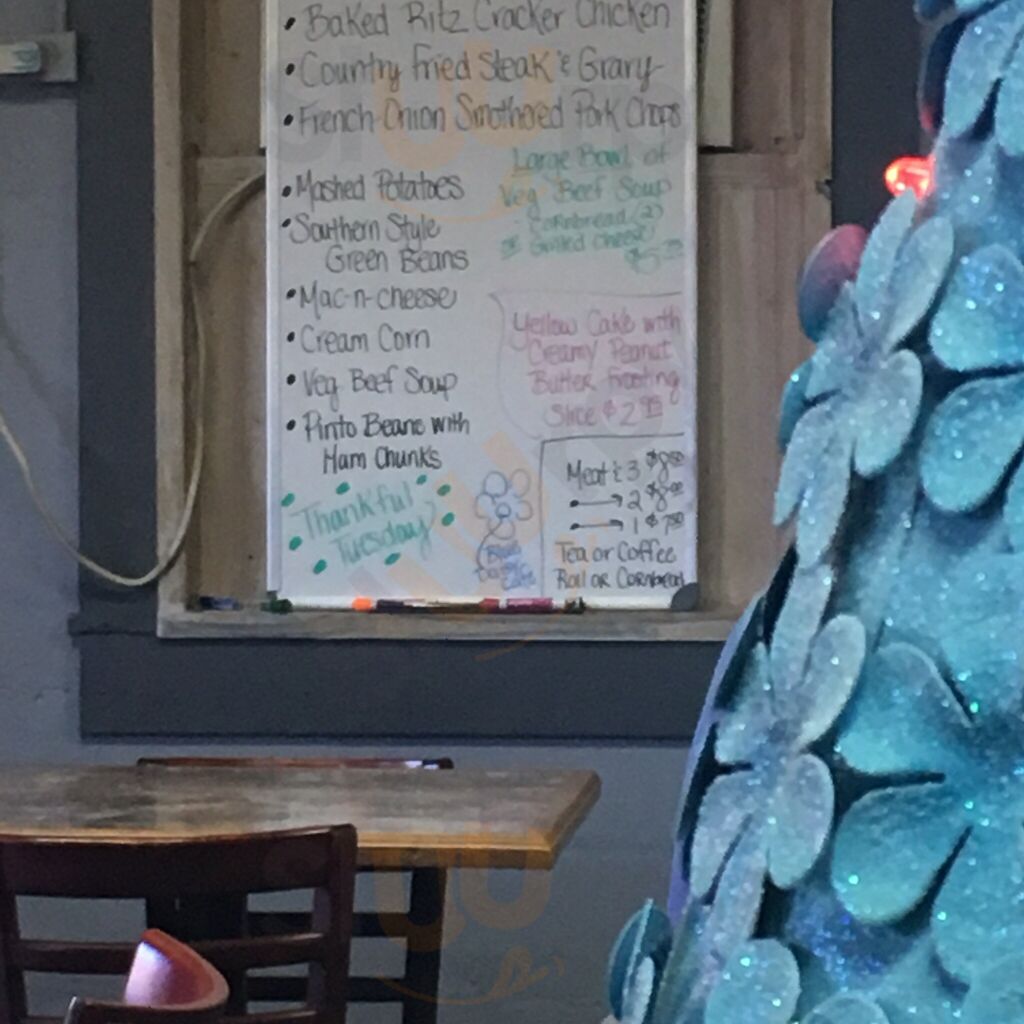 • Baked Ritz Cracker Chicken
• Country Fried Steak & Gravy
• French Onion Smothered Pork Chops
• Mashed Potatoes
• Southern Style
Green Beans
• Mac-n-cheese
• Cream Corn
• Veg Beef Soup
• Pinto Beans with
Ham Chunks
Thankful
Tuesday
Large Bowl of
Veg Beef Soup
Cornbread (2)
or Grilled Cheese
Yellow Cake with
Creamy Peanut
Butter Frosting
Slice $2.95
Meat & 3
2
1 $7.50
Tea or Coffee
Roll or Cornbread